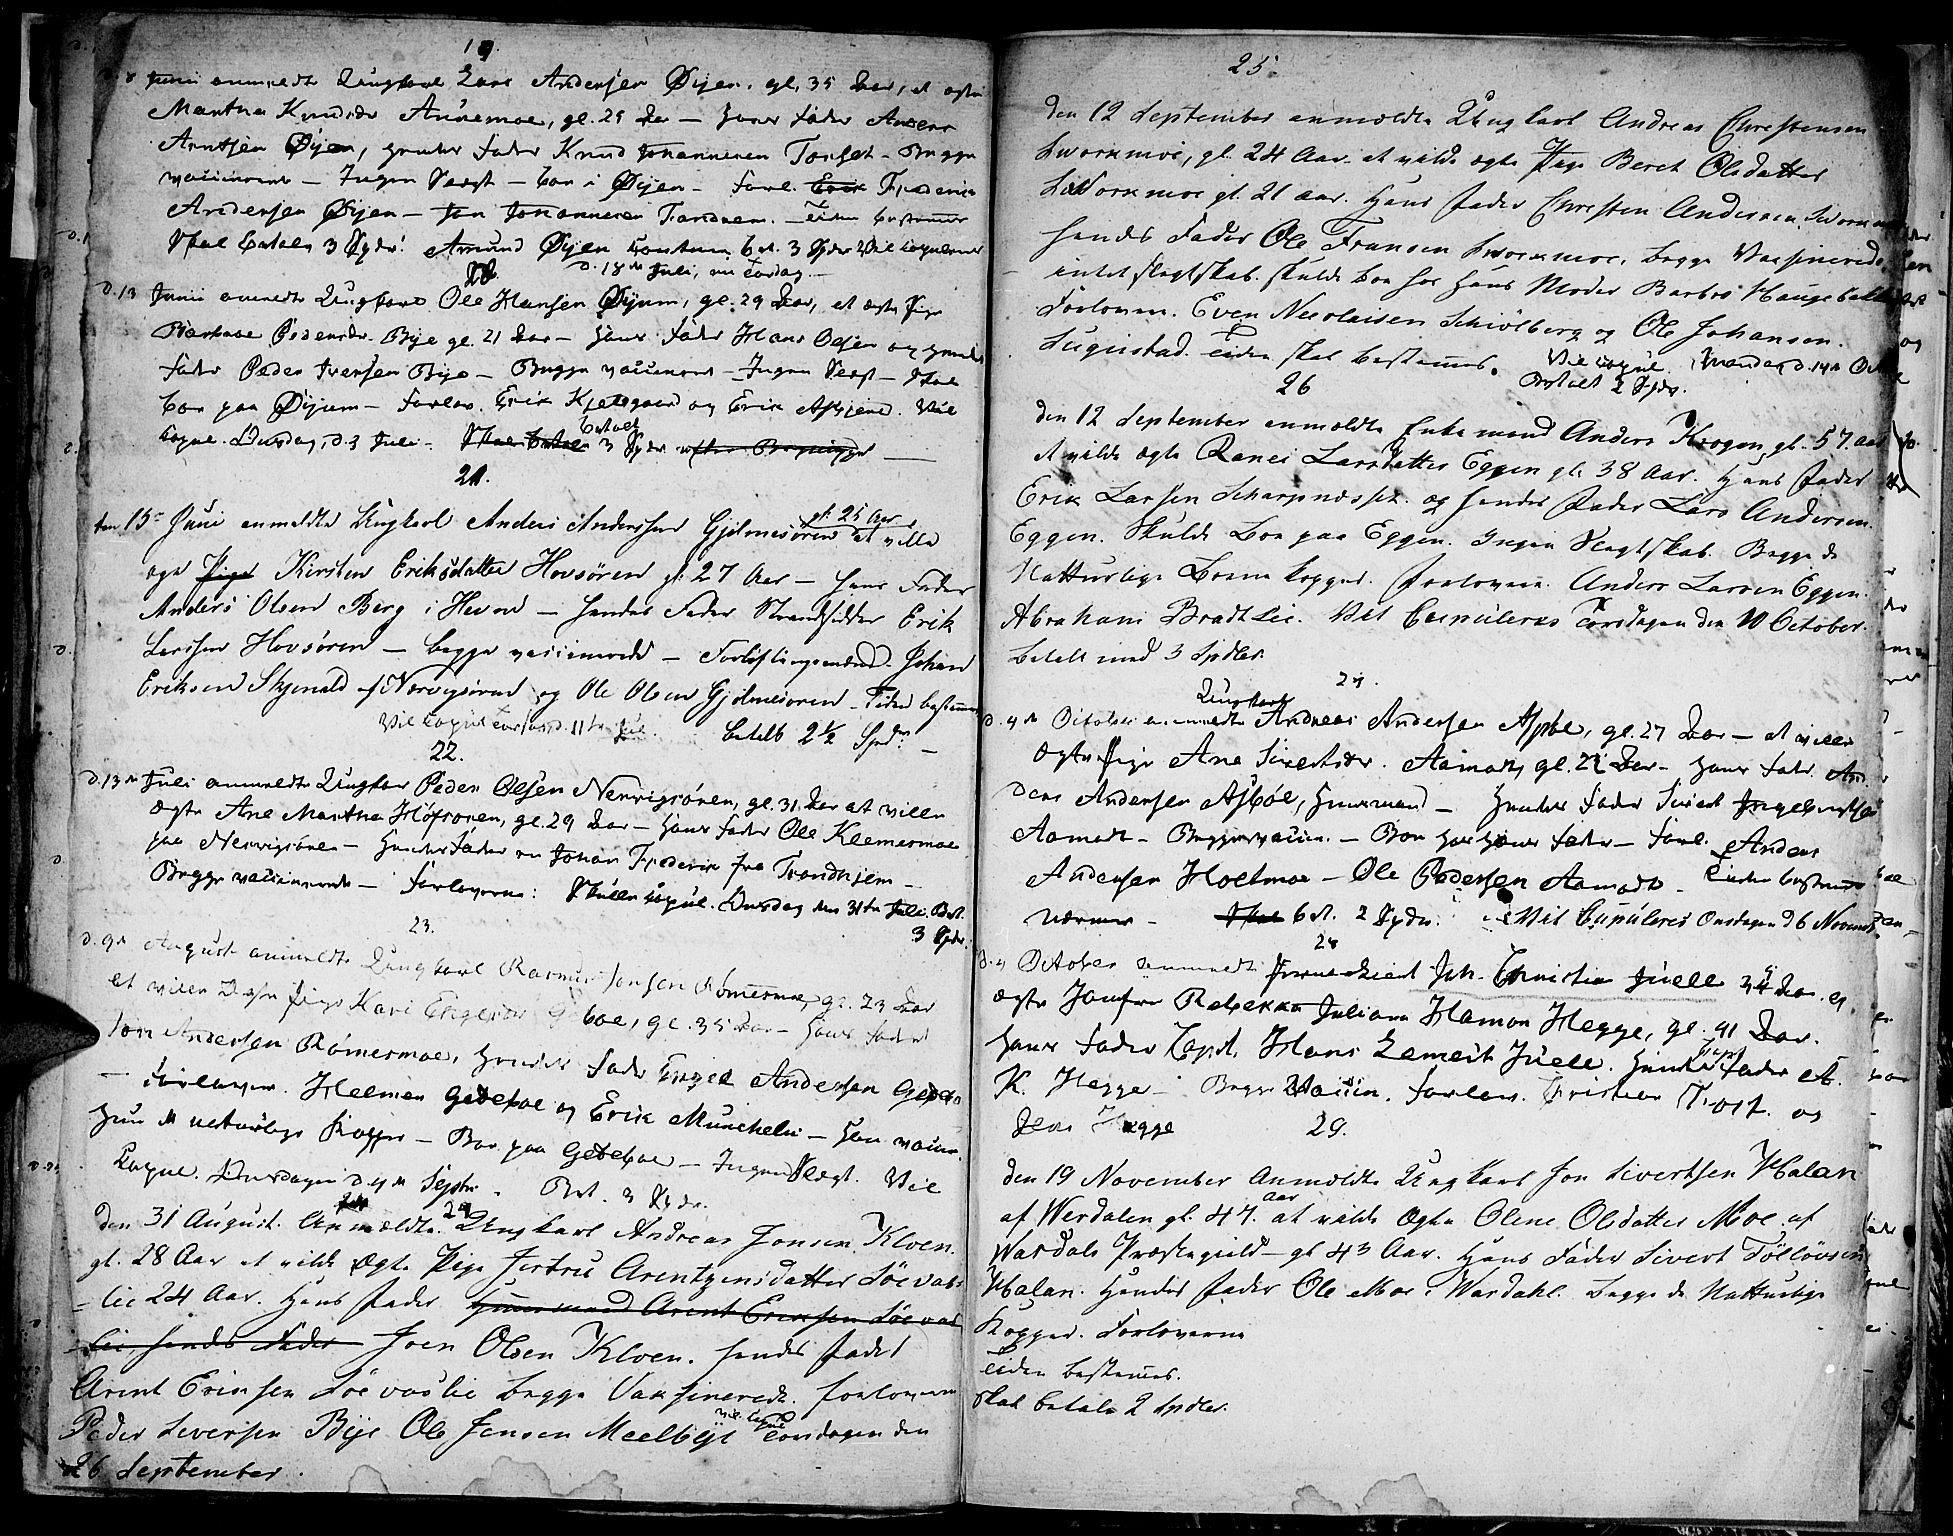 19.
Junii anmeldte Ungkarl Lars Andersen Øyen, gl. 35 Aar, at ægte
Martha Knudsdr Aunemoe, gl. 29 Aar — Hans Fader Anders
Arntsen Øyen, Hendes Fader Knud Johannesen Torset — Begge
vaccinerede — Ingen Slægt — boe i Øyen — Forl. Erik Frederik
Andersen Øyen — Jon Johannesen — Tiden bestemmes
Skal betale 3 Spdr. Amund Øyen bet. 3 Spdr Vil copuleres
d. 18de Juli, en Torsdag. —
20
d. 13 Junii anmeldte Ungkarl Ole Hansen Øyum, gl. 29 Aar, at ægte Pige
Pedersdr. Bye gl. 21 Aar — Hans Fader Hans Olsen og Hendes
Fader Peder Iversen Bye — Begge vaccinered — Ingen Slægt — Skal
boe paa Øyum — Forlov. Erik og Erik Asbjend. Vil
copul. d. 3 Juli — Skal betale betalt 3 Spdr efter
21.
den 15de Juni anmeldte Ungkarl Anders Anderssen Gjelmesøren gl: 25 Aar at ville
egte Pige Kirsten Eriksdatter Hovsøren gl: 27 Aar — Hans Fader
Anders Olsen Berg i Hevne — Hendes Fader Strandsidder Erik
Larssen Hovsøren — begge vaccinerede — Forløftningsmænd. Johan
Eriksen Skjenald af Nervigsøren og Ole Olsen Gjelmesøren — Tiden bestemmes
Vil copul Torsd. d. 11te Jul. betalt 2½ Spdr. —
22.
d. 13de Juli anmeldte Ungkar Peder Olsen Nervigsøren, gl. 31 Aar at ville
ægte Ane Martha Hofsoren, gl. 29 Aar — Hans Fader Ole Klemesmoe
paa Nervigsøren — Hendes Fader en Johan Frederik fra Trondhjem —
Begge vaccinerede — Forloverne: Skulle copul. den 31te Juli. Bet.
3 Spdr.
23.
d. 9de August anmeldte Ungkarl Rasmus Jonsen Rømesmoe, gl. 23 Aar
at ville Ægte Pige Kari boe, gl. 35 Aar — Hans Fader
Jon Andersen Rømesmoe, Hendes Fader Engel Andersen
— Forlovere. Helmer Gedeboe og Erik — Han vaccin.
Hun de naturlige Kopper — Boe paa Gedeboe — Ingen Slægt. Vil
Copul. d. 4de Septbr. Bet. 3 Spdr.
24
den 31 August. Anmeldte Ungkarl Andreas Jonsen Kloen.
gl. 28 Aar at vilde Ægte Pige Jertru Arentzensdatter Søevas-
lie 24 Aar. Hans Fader Huusmand Arent Eriksen Søevas
lie, hends Fader Joen Olsen Kloen. hends Fader
Arent Eriksen Søevaslie begge Vaksinerede. forlovere
Peder Seversen Bye Ole Jensen Meelbye vil Copul Torsdagen den
26 September.
25.
den 12 September anmeldte Ungkarl Andreas Christensen
Sworkmoe, gl. 24 Aar at vilde ægte Pige Beret Olsdatter
Sworkmoe gl. 21 aar. Hans Fader Christen Andersen Sworkmoe
hends Fader Ole Fransen Sworkmoe, begge Vaksinerede,
intet slegtskab. skulde boe hos hans Moder Barbro
Forlovere. Even Nicolaisen Schiölberg og Ole Johansen.
Sugustad. Tiden skal bestemmes. Vil copul. Mandag d. 14de Octbr
Betalt 2 Spdr.
26
den 12 September anmeldte Enkemand Anders Krogen, gl. 57. aar
at vilde ægte Ranei Larsdatter Eggen gl. 38 Aar. Hans Fader
Erik Larsen Scharpnesset. og hendes Fader Lars Andersen
Eggen. Skulde boe paa Eggen. Ingen Slegtskab. Begge de
Natturlige Børne kopper. Forlovere. Anders Larsen Eggen.
Abraham Bradtlie. Vil Copuleres Torsdagen den 10 October.
betalt med 3 Spdler.
27.
d. 4de October anmeldte Ungkarl Andreas Andersen Asbøl, gl. 27 Aar — at ville
ægte Pige Ane Sivertsdr. Aamodt, gl. 22 Aar — Hans Fader
Andersen Asbøl, Huusmand — Hendes Fader Sivert Ingebrigtsen
Aamodt — Begge vaccin. — Boe hos hans Fader — Forl. Anders
Andersen Holtmoe — Ole Pedersen Aamodt — Tiden bestemmes
nærmere — Skal bet. 2 Spdr. Vil Cupuleres Onsdagen d 6 November
28
d. 4 October anmeldte Joh. Christian Juell 34 Aar at
ægte Jomfru Rebekka Juliana Hamon Hegge, gl. 41 Aar.
Hans Fader Capt. Hans Juell. Hendes Fader Capt A.
K. Hegge — Begge Vaccin. Forlov. Christian Trost. og
Jens Hegge
29.
den 19 November Anmeldte Ungkarl Jon Sivertsen Hallan
af Werdalen gl. 47. aar at vilde Ægte Olene Olsdatter Moe af
Wardals Præstegield — gl 43 Aar. Hans Fader Sivert Tölløvsen
Hallan. Hendes Fader Ole Moe i Wardahl. begge de Natturlige
Kopper. Forloverne
Tiden bestemmes.
skal betale 2 Spdler.